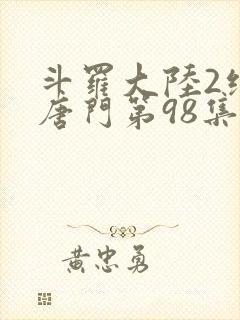 斗羅大陸2
唐門第98集
黃忠勇